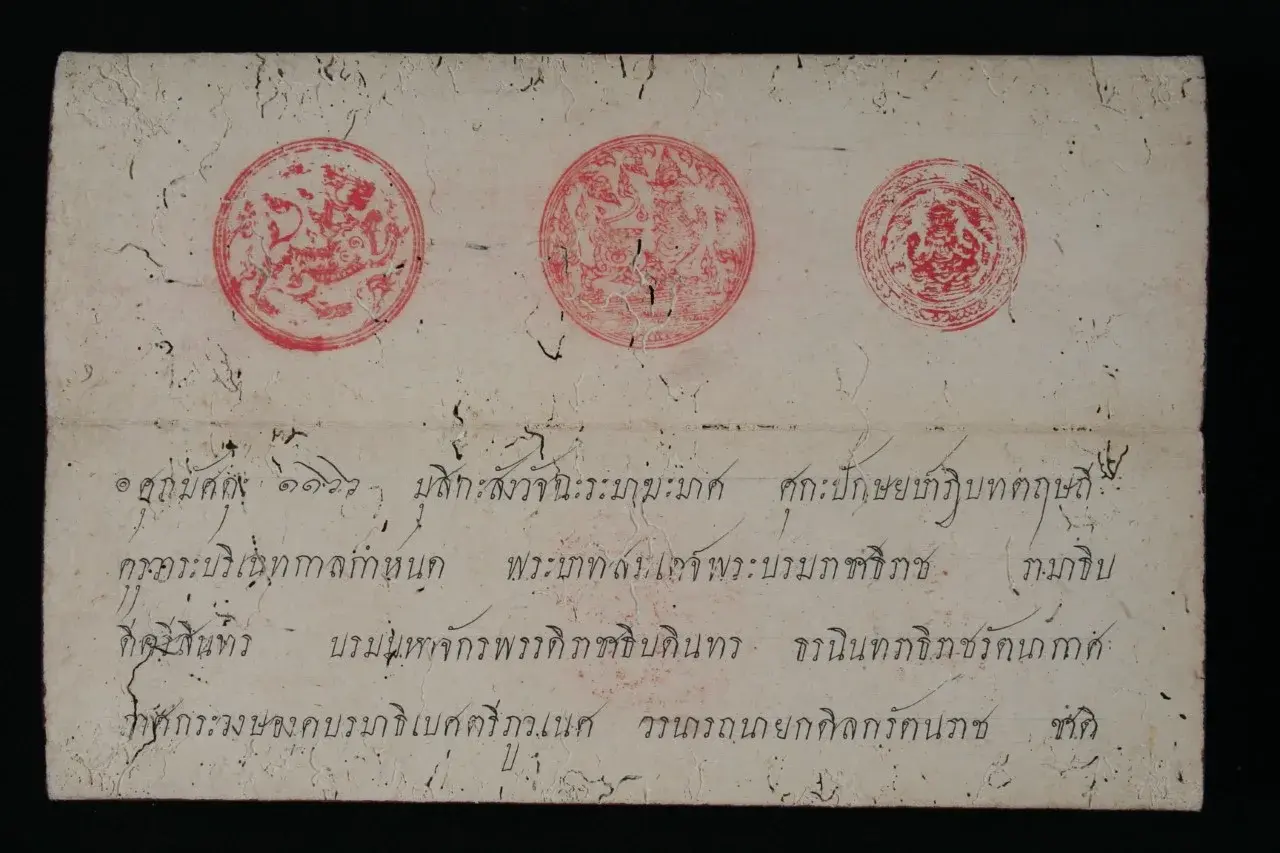 ๏ ศุภมัศดุ ๑๑๖๖ มุสิกะสังวัจฉะระมาฆะมาศ
คุรุวาระบริเฉทกาลกำหนด พระบาทสมเดจ์พระบรมราชาธิราช รามาธิบ
ดีศรีสินทร บรมมหาจักรพรรดิราชาธิบดินทร ธรนินทราธิราชรัตนากาศ
ภาศกระวงษองคบรมาธิเบศตรีภูวเนศ วรนารถนายกดิลกรัตนราช ชาติ